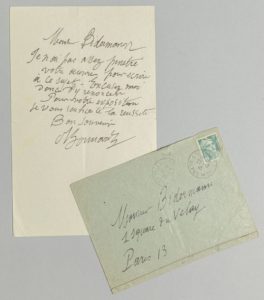 Mons Bidermanas
Je n'ai pas assez pénétré
votre œuvre pour écrire
à ce sujet. Excusez moi
donc d'y renoncer
Pour votre exposition
je vous souhaite la réussite
Bon souvenir
Monsieur Bidermanas
1 square du Velay
Paris 13